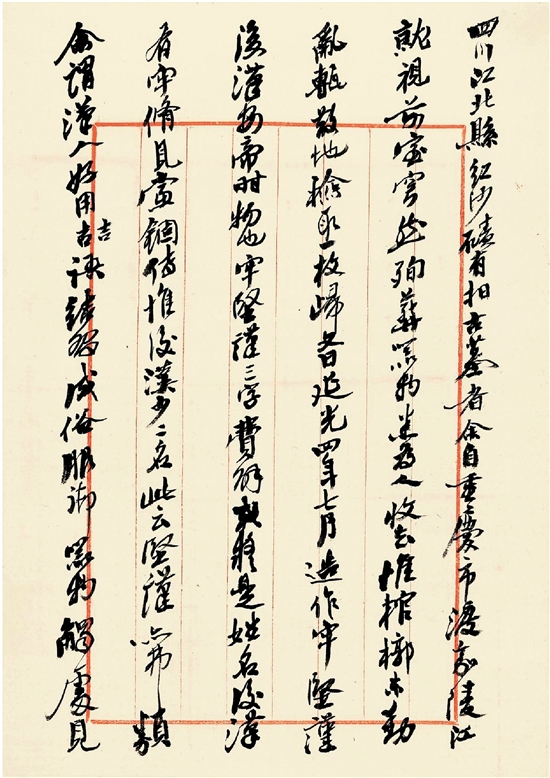 四川江北縣紅沙磧有抇古墓者余自重慶市渡嘉陵江
就視前室然殉葬器物悉為人收去惟棺槨未動
亂甎散地檢取一枚歸文曰延光四年七月造作牢堅謹
後漢安帝時物也牢堅謹三字費解是姓名後漢
有牢脩見黨錮傳惟後漢少二名此云堅謹亦弗類
余謂漢人好用吉語成俗服御器物觸處見